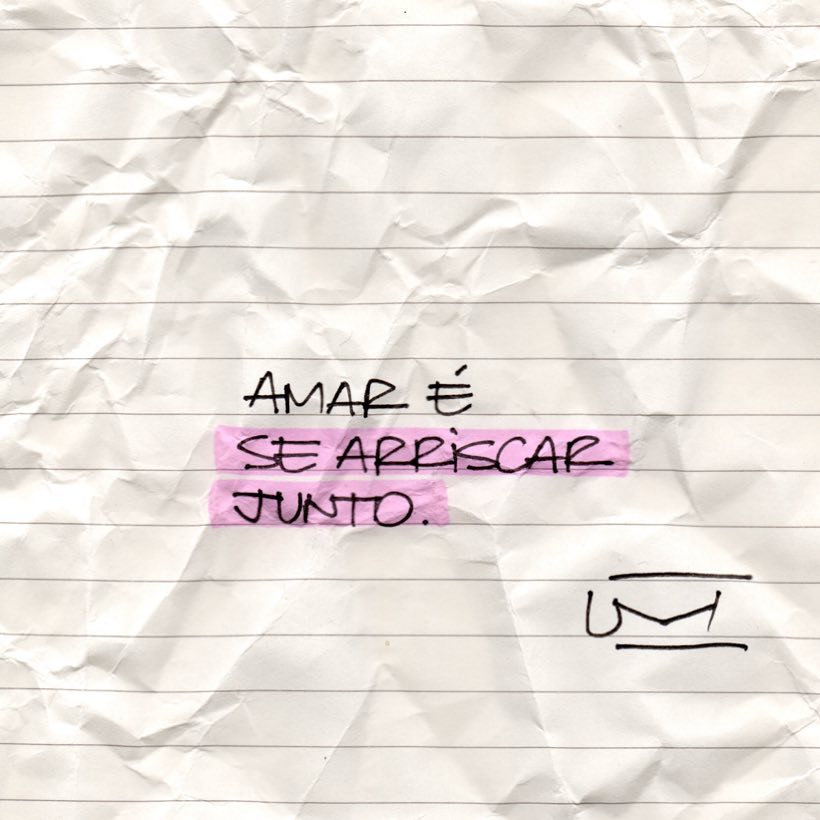 AMAR É
SE ARRISCAR
JUNTO.